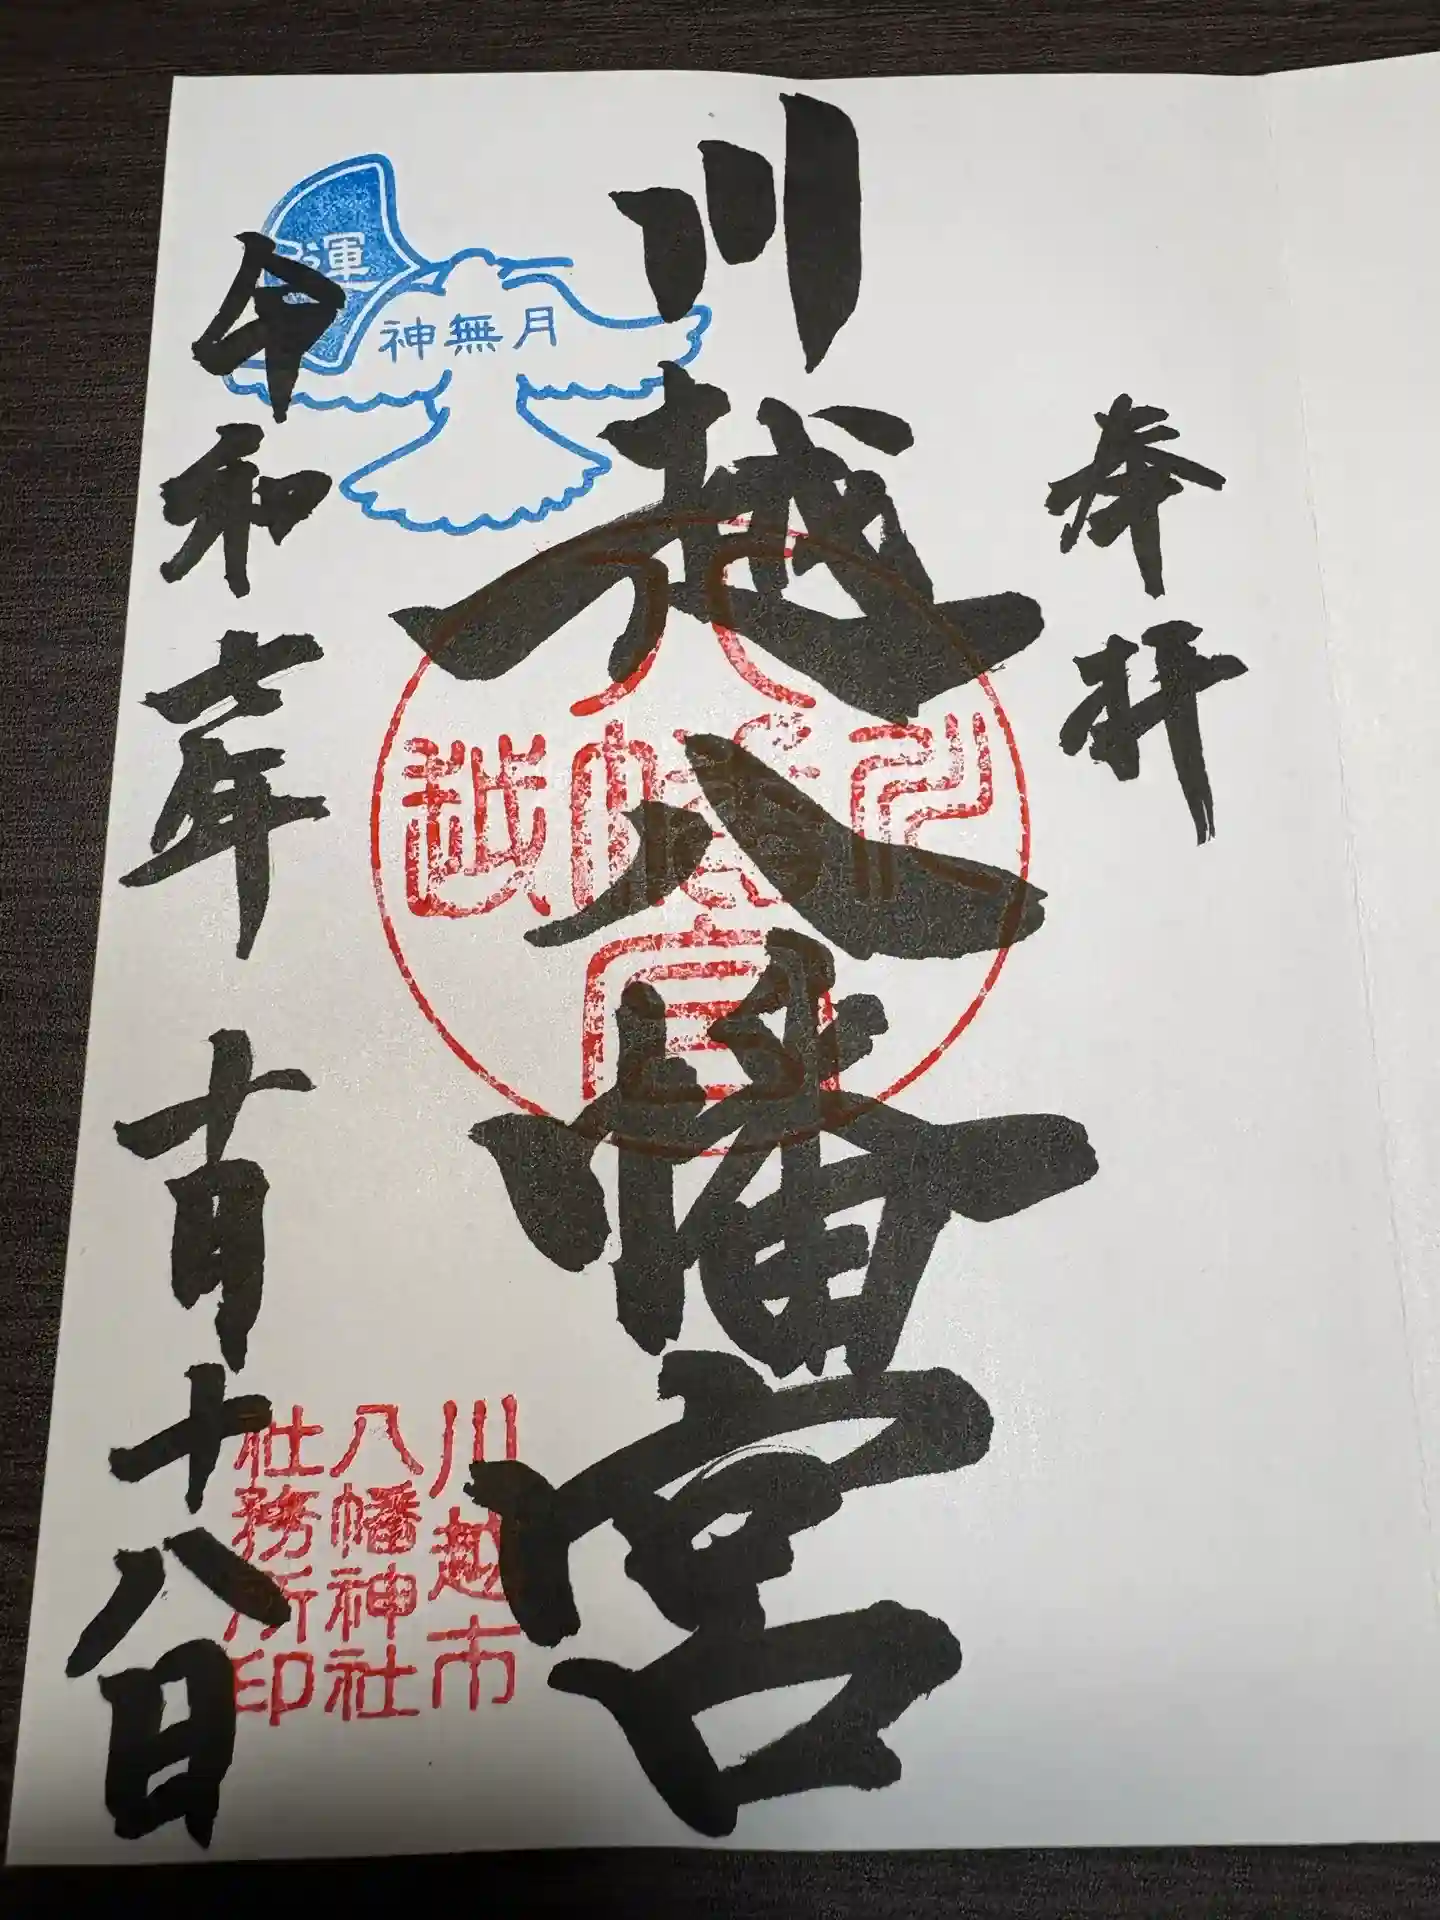 奉拝
川越八幡宮
令和七年 十月十八日
運
神無月
八
川幡越
宮
川越市
八幡神社
社務所印